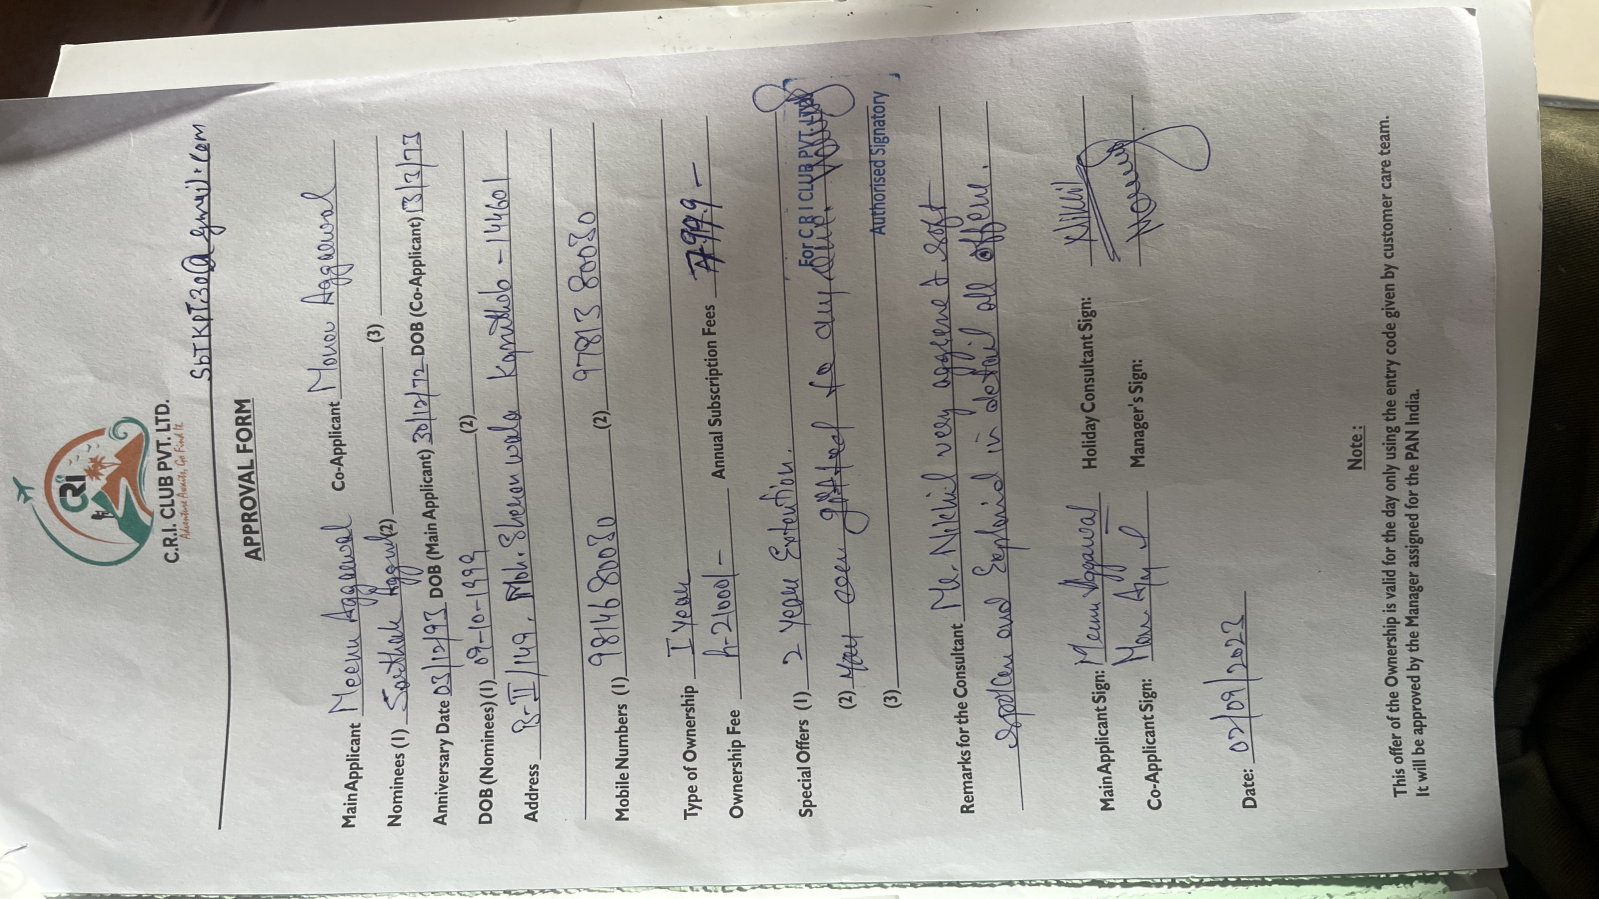 CRI
C.R.I. CLUB PVT. LTD.
Adventure Awaits, Go Find It.
SbTKPT30@gmail.com
APPROVAL FORM
Main Applicant Meenu Aggarwal Co-Applicant Aggarwal
Nominees (1) Sarthak Aggarwal (2) (3)
Anniversary Date 03/12/93 DOB (Main Applicant) 30/12/72 DOB (Co-Applicant) 13/3/73
DOB (Nominees) (1) 09-10-1999 (2)
Address B-II/149, Moh. Sheranwala Kapurthala - 144601
Mobile Numbers (1) 98146 80030 (2) 97813 80030
Type of Ownership 1 year
Ownership Fee 21000/- Annual Subscription Fees 7999 -
Special Offers (1) 2 year Extention.
(2) You been gifted to any
For C R I CLUB PVT. LTD.
(3)
Authorised Signatory
Remarks for the Consultant Mr. Nikhil very & soft
spoken and Explained in detail all offers.
Main Applicant Sign: Meenu Aggarwal Holiday Consultant Sign: Nikhil
Co-Applicant Sign: Manager's Sign:
Date: 02/09/2023
Note :
This offer of the Ownership is valid for the day only using the entry code given by customer care team.
It will be approved by the Manager assigned for the PAN India.